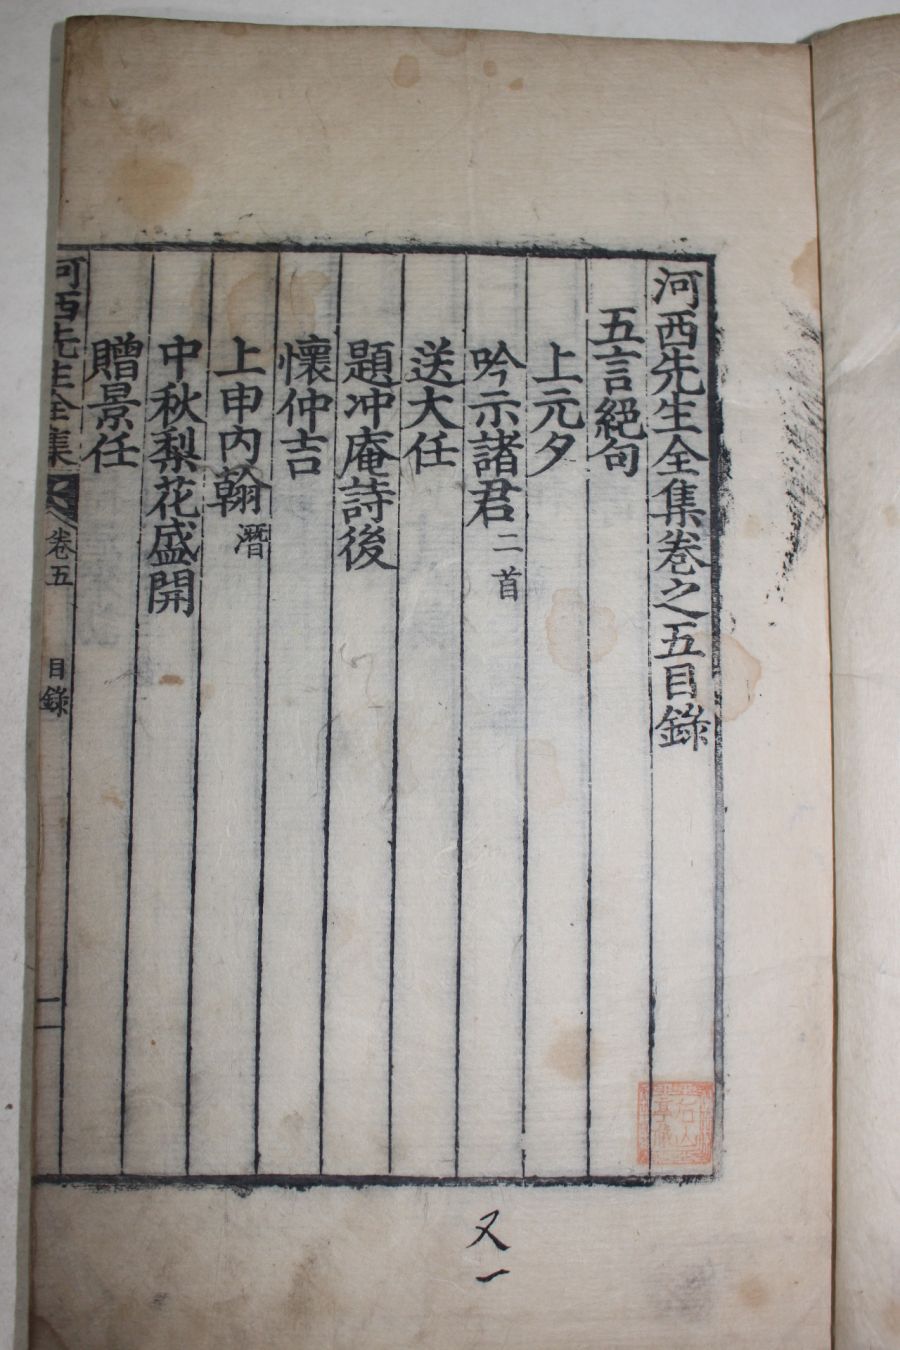 河西先生全集卷之五目錄
五言絕句
上元夕
吟示諸君 二首
送大任
題冲庵詩後
懷仲吉
上申內翰 潛
中秋梨花盛開
贈景任
河西先生全集 卷五 目錄 一
又一